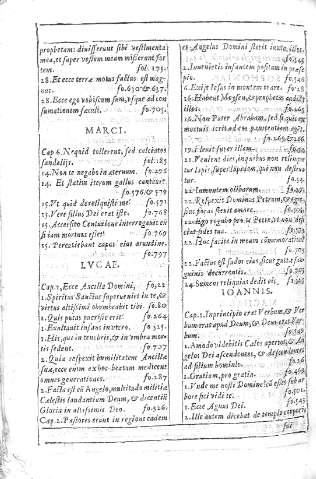 prophetam: diviserunt sibi vestimenta
mea, et super vestem meam miserunt sor
tem. fol. 173.
28. Et ecce terræ motus factus est mag-
nus. fo. 630. & 637.
28. Ecce ego vobiscum sum, usque ad con
sumationem sæculi. fo. 705.
MARCI.
Cap 6. Nequid tollerent, sed calceatos
sandalijs. fol: 183
14. Non te negabo in æternum. fo. 496
14. Et statim iterum gallus cantavit.
fo. 576. & 578
15. Vt quid dereliquisti me? 571
15. Vere filius Dei erat iste. fo. 768
15. Accersito Centurione interrogavit eũ
si iam mortuus esset? fo. 769
15. Percutiebant caput eius arundine.
fo. 797
LVCAE.
Cap. 1, Ecce Ancilla Domini, fo, 22
1. Spiritus Sanctus superveniet in te, &
virtus altissimi obumbrabit tibi. fo. 80
1. Quis putas puer iste erit? fo. 264.
1. Exultavit infans in utero. fo. 325.
1. His, qui in tenebris, & in umbra mor-
tis sedent. fo. 707.
2. Quia respexit humilitatem Ancillæ
suæ, ecce enim ex hoc beatam me dicent
omnes generationes. fo. 287
2. Facta est cũ Angelo, multitudo militiæ
Cælestis laudantium Deum, & dicentiũ
Gloria in altissimis Deo. fo. 326.
Cap. 2. Pastores erant in regione eadem
et Angelus Domini stetit iuxta illos.
fo. 546
2. Invenietis infantem positum in præse
pio.
4. Exijt Iesus in montem
fo. 285
16. Non Pater Abraham, sed si quis ex
mortuis ierit ad eos pœnitentiam agẽt.
19. Flevit super illam.
21. Venient dies, in quibus non relinque
tur lapis super lapidem, qui non destrua
tur.
22. In montem olivarum.
22. Respexit Dominus Petrum, & egres-
sus foras flevit amare.
22. Hoc facite in meam cõmemorationẽ
22. Factus est sudor eius, sicut guttæ sã-
guinis decurrentis.
24. Sumens reliquias dedit eis.
IOANNIS.
Cap. 1. In principio erat Verbum, & Ver
bum erat apud Deum, & Deus erat Ver
bum.
1. Amodo videbitis Cælos apertos, & An
gelos Dei ascendentes, & descendentes
ad filium hominis.
1. Gratiam, pro gratia. fo. 469.
1. Vnde me nosti Domine? cũ esses sub ar
bore fici vidi te.
1. Ecce Agnus Dei. fo. 543
2. Ille autem dicebat de templo corporis
sui